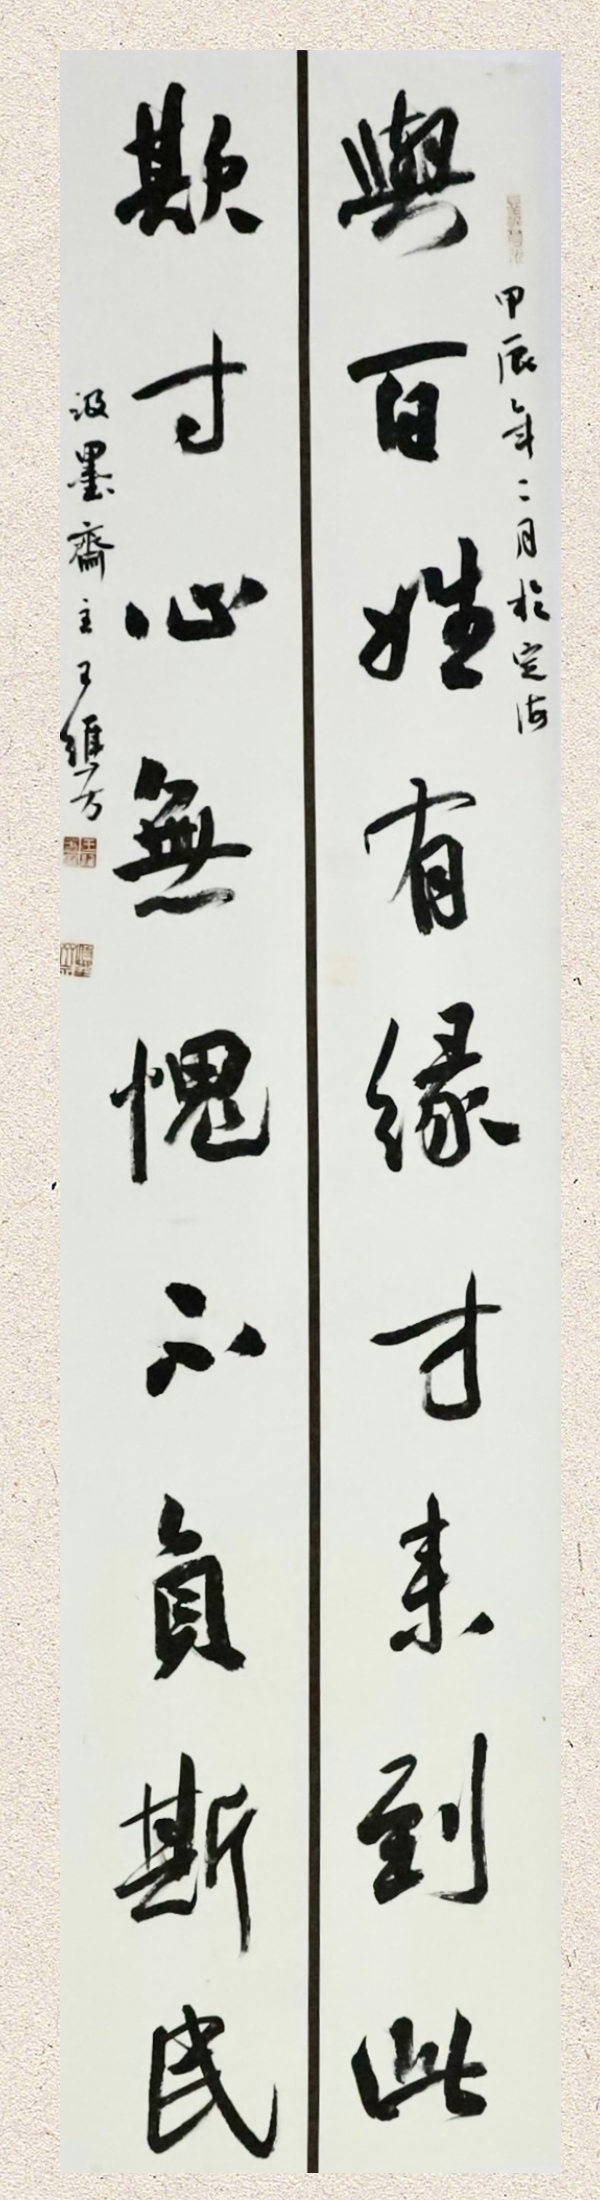 甲辰年二月於定海
與百姓有緣才来到此
欺寸心無愧不負斯民
汲墨齋主王維方